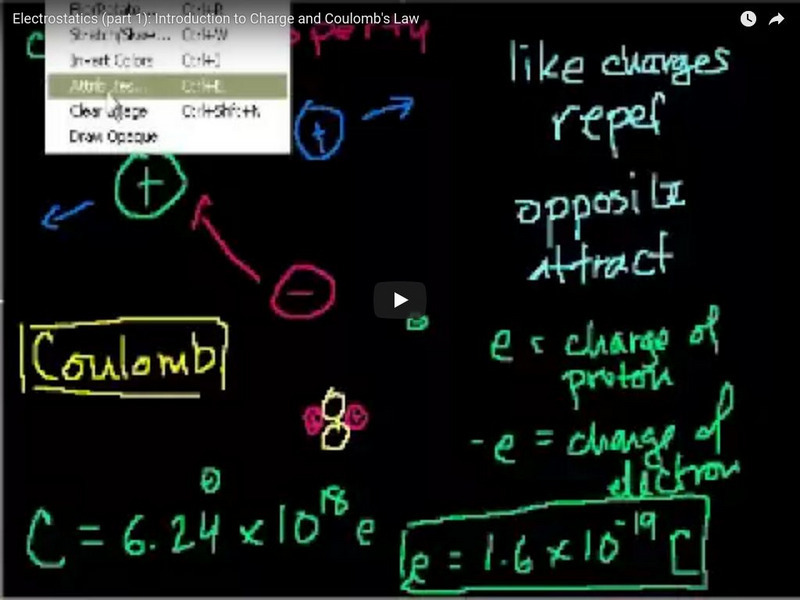 Electrostatics (part 1): Introduction to Charge and Coulomb's Law
Ctrl+R
Stretch/Skew... Ctrl+W
Invert Colors Ctrl+I
Attributes... Ctrl+E
Clear Image Ctrl+Shft+N
Draw Opaque
like charges
repel
+
+
opposite
attract
−
Coulomb
e = charge of
proton
-e = charge of
electron
C = 6.24 × 10^18 e
e = 1.6 × 10^-19 C